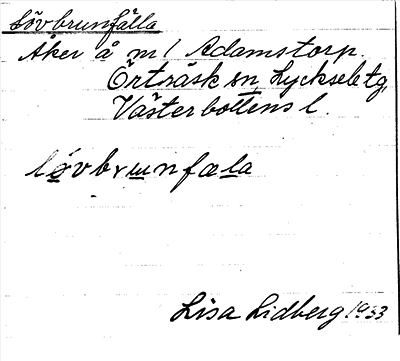 Lövbrunfälla
Åker å m/ Adamstorp.
Örträsk sn, Lycksele tg,
Västerbottens l.
lövbrunfæla
Lisa Lidberg 1933